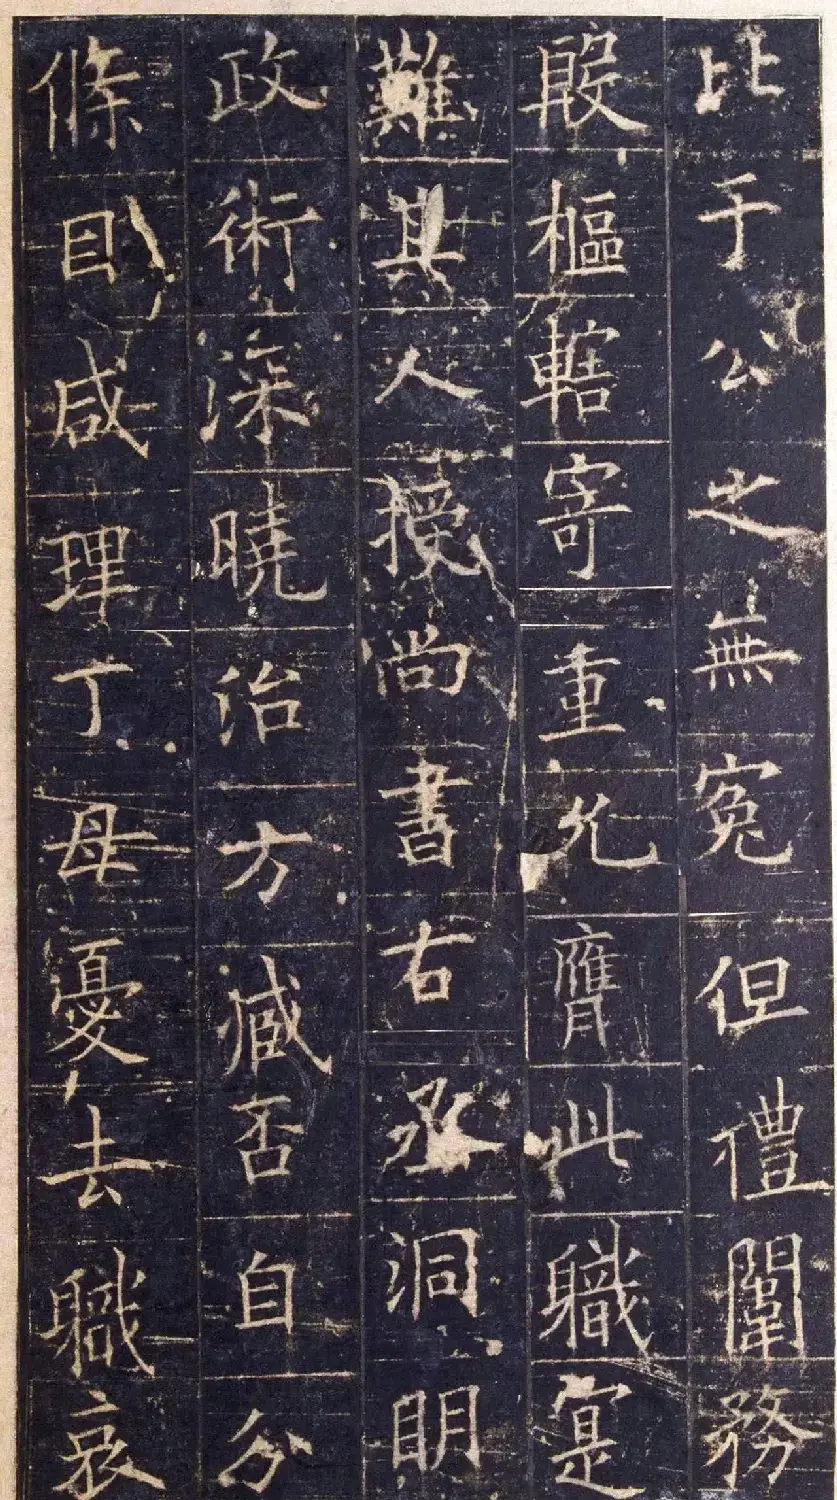 比于公之無冤但禮闈務
殷樞轄寄重允膺此職寔
難其人授尚書右丞洞明
政術深曉治方臧否自分
條目咸理丁母憂去職哀